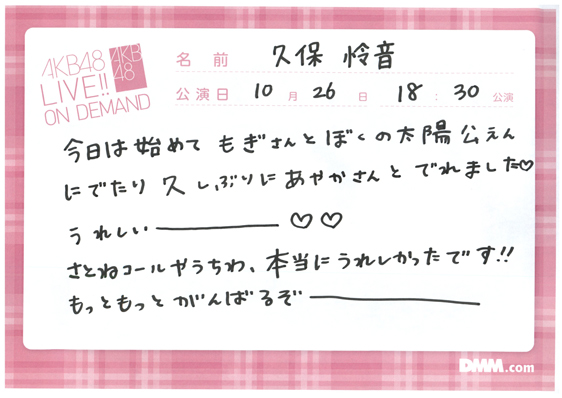 AKB48
LIVE!!
ON DEMAND
AKB
48
名前 久保 怜音
公演日 10月26日 18:30公演
今日は始めて もぎさんとぼくの太陽公えん
にでたり 久しぶりにあやかさんと でれました♡
うれしい――― ♡♡
さとねコールやうちわ、本当にうれしかったです!!
もっともっと がんばるぞ―――
DMM.com